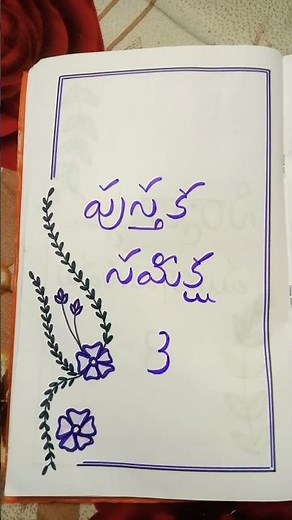 పుస్తక
సమీక్ష
3